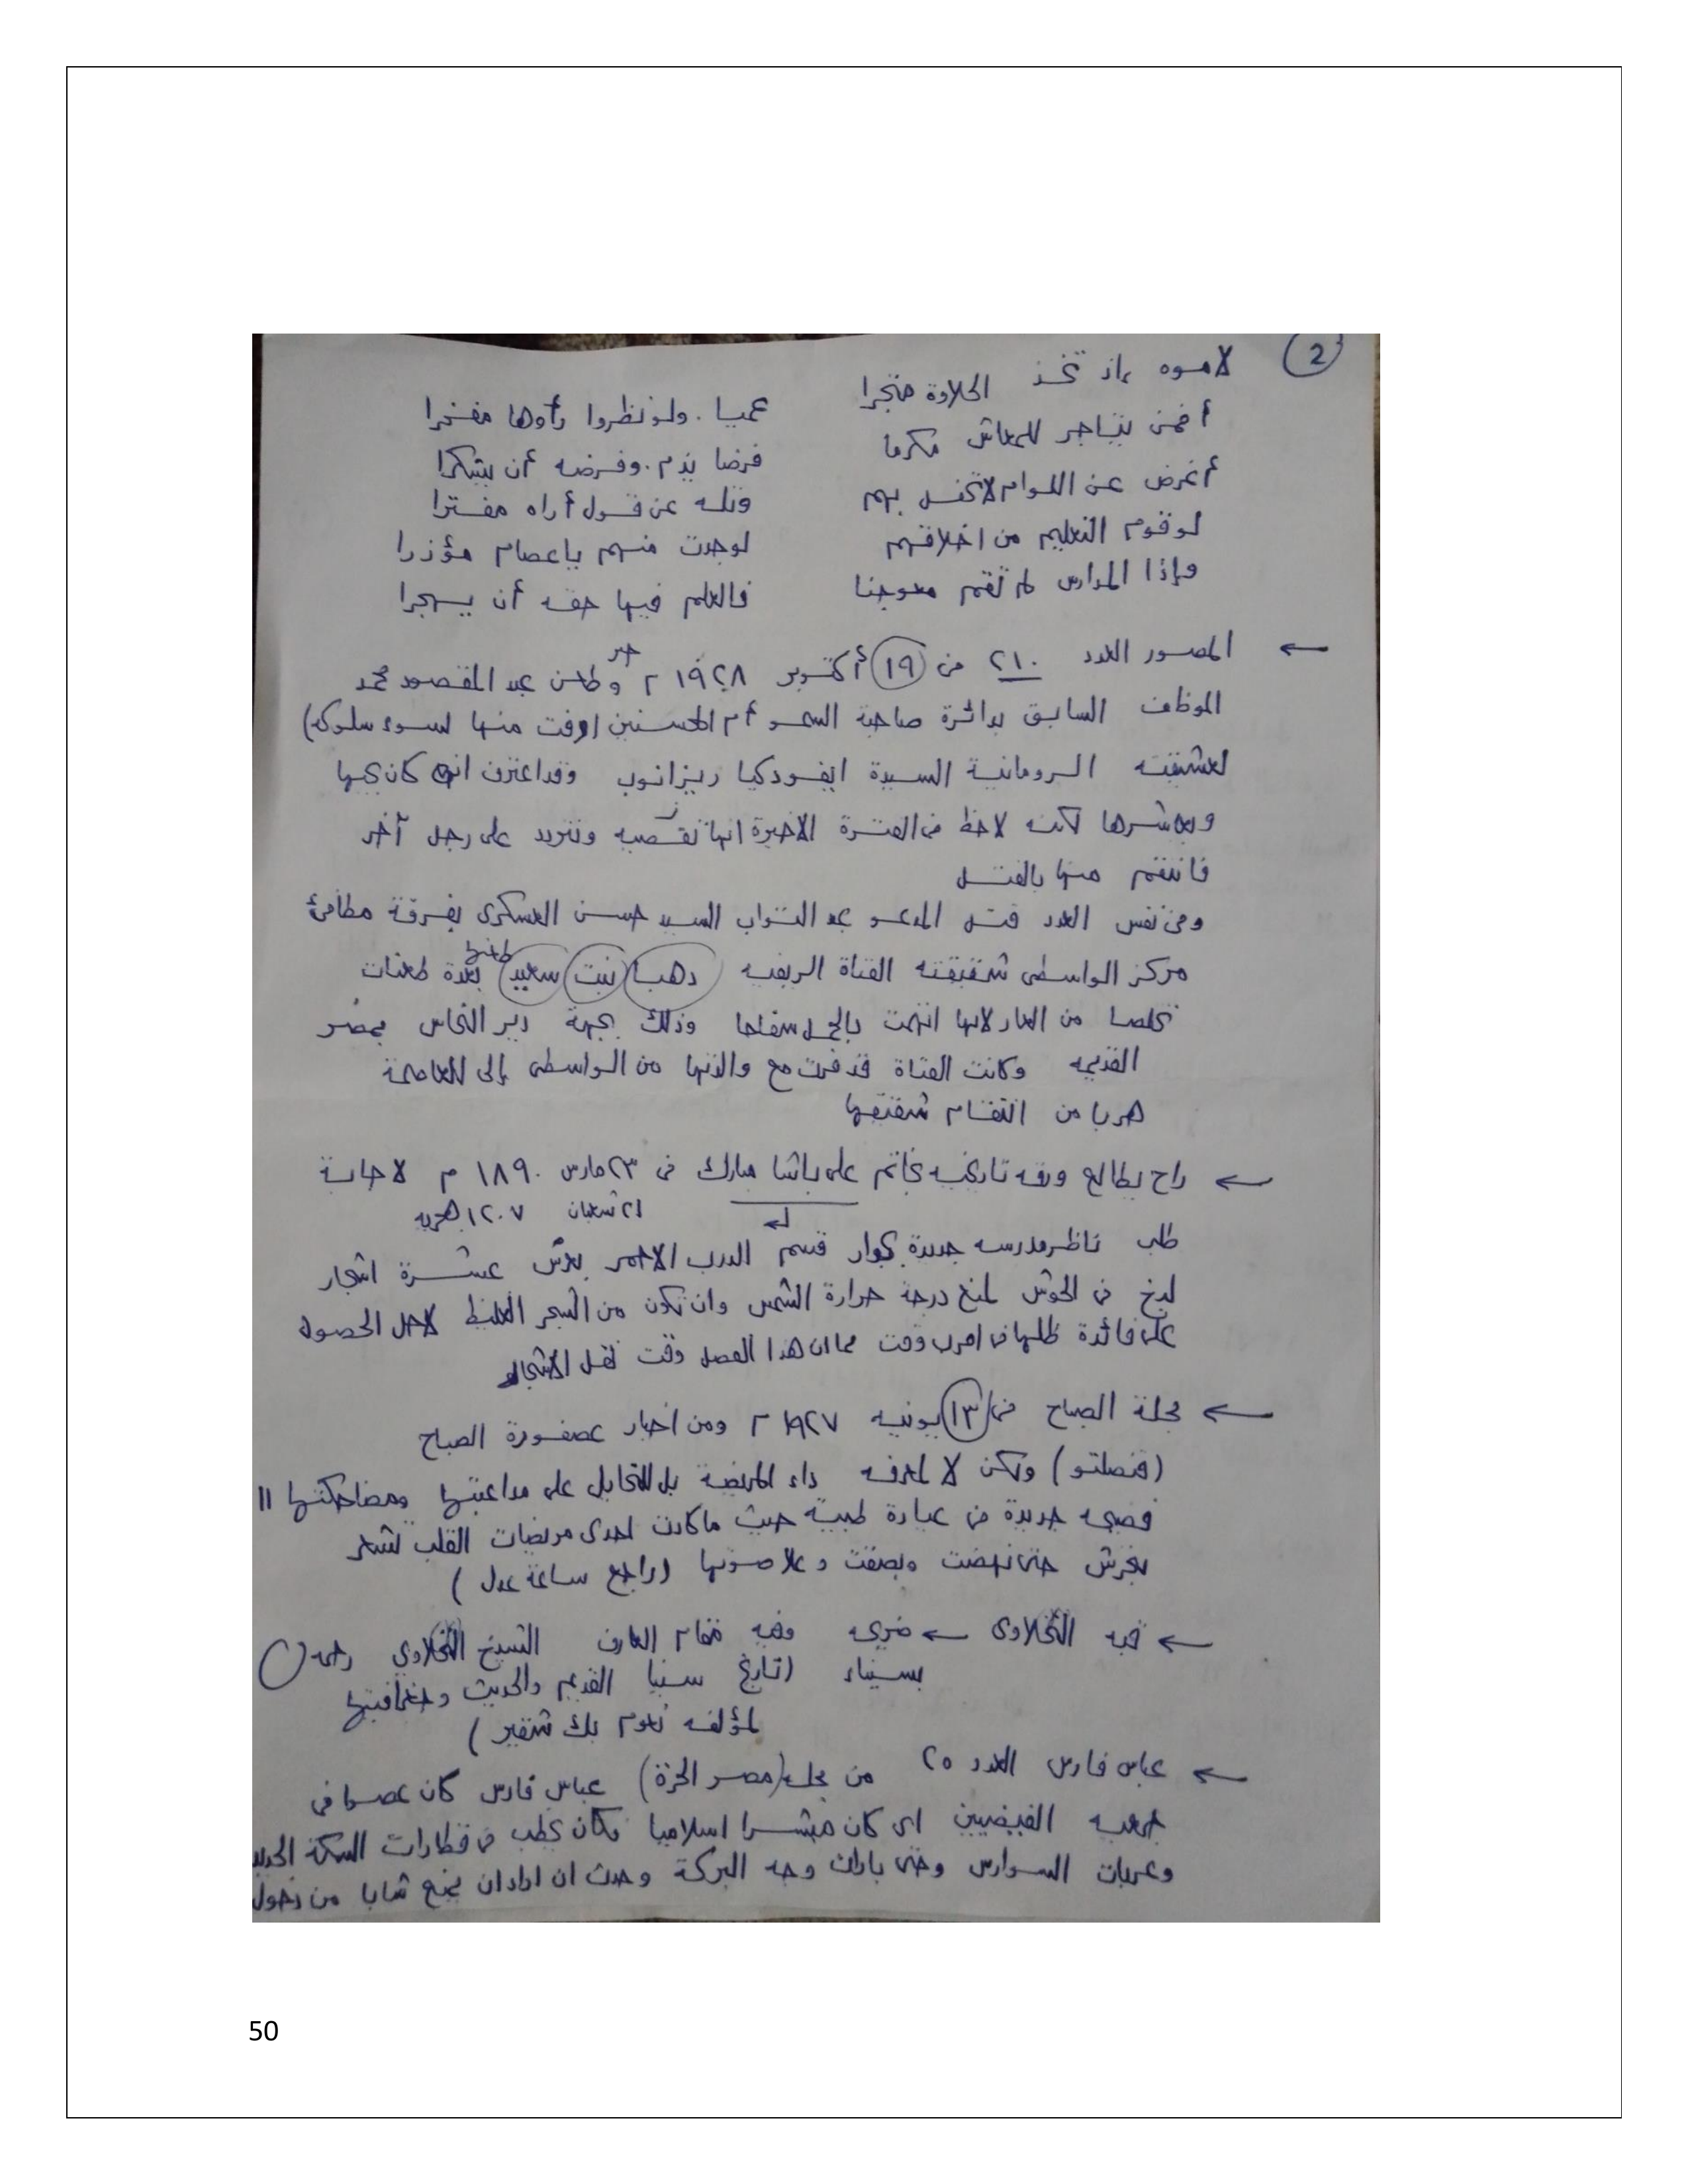 2
لاموه بإذ تخذ الحلاوة متجرا
عميا . ولو نظروا رأوها مفخرا
أفمن يتاجر للمعاش مكرما
فرضا يذم . وفرضه أن يشكرا
أغرض عن اللوام لا تحفل بهم
وتله عن قول أراه مفترا
لوقوم التعليم من اخلاقهم
لوجدت منهم ياعصام مؤذرا
وإذا المدارس لم تقم معوجنا
فالعلم فيها حقه أن يهجرا
← المصور العدد ٢١٠ من ١٩ أكتوبر ١٩٢٨ م خبر وطعن عبد المقصود محمد
الموظف السابق بدائرة صاحبة السمو أم المحسنين (رفت منها لسوء سلوكه)
لعشيقته الرومانية السيدة ايفودكيا ريزانوب وقد اعترف انه كان يحبها
ويعاشرها لكنه لاحظ فى الفترة الاخيرة انها تقصيه وتتردد على رجل آخر
فانتقم منها بالقتل
وفى نفس العدد قتل المدعو عبد التواب السيد حسن العسكرى بفرقة مطافئ
مركز الواسطى شقيقته الفتاة الريفيه دهب بنت سعيد طعنها بعدة طعنات
تخلصا من العار لانها اتهمت بالحمل سفاحا وذلك بجهة دير النحاس بمصر
القديمه وكانت الفتاة قد فرت مع والدتها من الواسطى إلى العاصمة
هربا من انتقام شقيقها
← راح يطالع ورقه تاريخيه بخاتم على باشا مبارك فى ٢٣ مارس ١٨٩٠ م لاجابة
٢١ شعبان ١٢٠٧ هجريه
طلب ناظر مدرسه جديدة بجوار قسم الدرب الاحمر بغرس عشرة اشجار
لبخ فى الحوش لمنع درجة حرارة الشمس وان تكون من الشجر الغليظ لاجل الحصول
على فائدة ظلها فى اقرب وقت بما ان هذا الفصل وقت نقل الاشجار
← مجلة الصباح فى ١٣ يونيه ١٩٢٧ م ومن اخبار عصفورة الصباح
(قنصلتو) ولكن لا لمعرفه داء المريضة بل للتحايل على مداعبتها ومضاحكتها !!
فضيحه جديدة فى عيادة طبية حيث ماكادت احدى مريضات القلب تشعر
بغرش حتى نهضت وبصقت وعلا صوتها (راجع ساعة عدل)
← قبه النخلاوى ← ضريح وفيه مقام العارف الشيخ النخلاوي رحمه
بسيناء (تاريخ سينا القديم والحديث وجغرافيتها
لمؤلفه نعوم بك شقير)
← عباس فارس العدد ٢٥ من مجلة (مصر الحرة) عباس فارس كان عضوا فى
جمعيه الفيضيين اى كان مبشرا اسلاميا فكان يخطب فى قطارات السكة الحديد
وعربات السوارس وحتى بارات وجه البركة وحدث ان اراد ان يمنع شابا من دخول
50